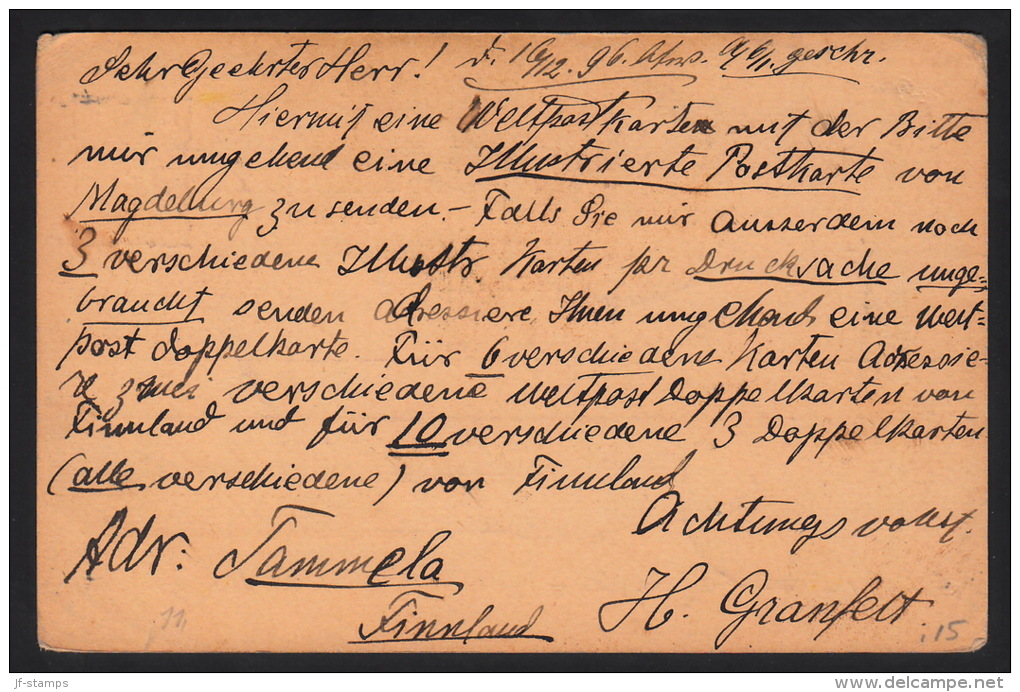 Sehr Geehrter Herr! d. 16/12. 96. geschr.
Hiermit eine Weltpostkarten mit der Bitte
mir umgehend eine Illustrierte Postkarte von
Magdeburg zu senden. – Falls Sie mir ausserdem noch
3 verschiedene Illustr Karten pr Drucksache unge-
braucht senden adressiere Ihnen umgehend eine Welt=
post doppelkarte. Für 6 verschiedene Karten Adressie-
r zwei verschiedene Weltpost Doppelkarten von
Finnland und für 10 verschiedene 3 Doppelkarten
(alle verschiedene) von Finnland
Achtungsvollst.
Adr: Tammela H. Granfelt
Finnland
15
jf-stamps
www.delcampe.net